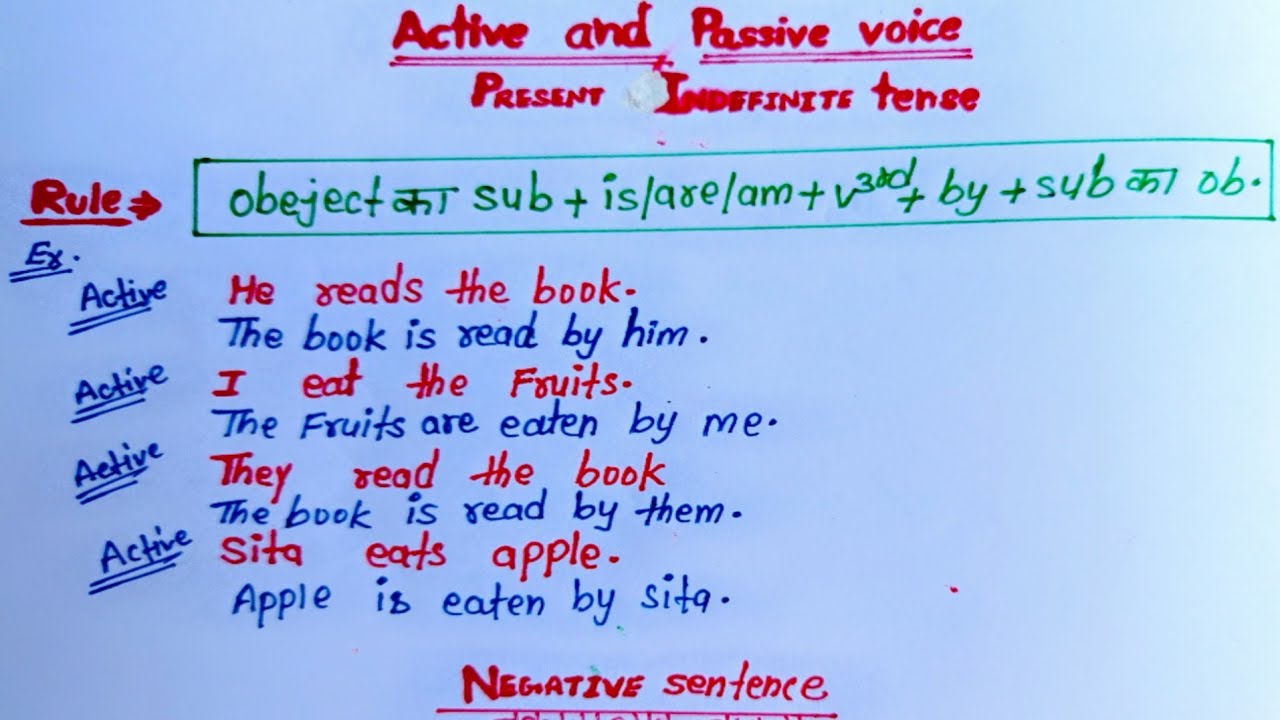 Active and Passive voice
PRESENT INDEFINITE tense
Rule→ obeject का sub + is/are/am + v³ʳᵈ + by + sub का ob.
Ex.
Active He reads the book.
The book is read by him.
Active I eat the Fruits.
The Fruits are eaten by me.
Active They read the book
The book is read by them.
Active Sita eats apple.
Apple is eaten by sita.
NEGATIVE sentence